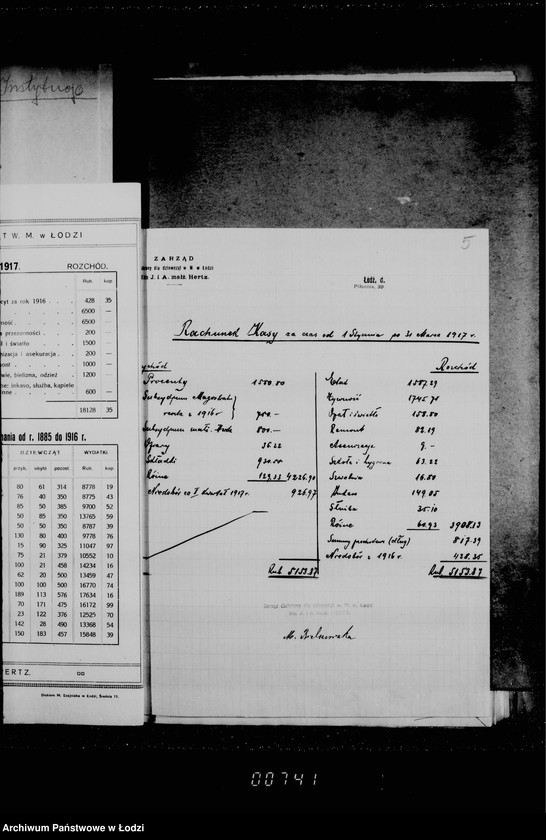 Instytucje
T W. M. w ŁODZI
1917. ROZCHÓD.
Rub. kop.
cyt za rok 1916 . . . 428 35
6500 —
ność . . . 6500 —
przenności . . 200 —
ł i światło . . 1500 —
nizacja i asekuracja . . 200 —
nost . . . 1000 —
wie, bielizna, odzież . 1200 —
ne: inkaso, służba, kąpiele
inne . . . 600 —
18128 35
nania od r. 1885 do 1916 r.
DZIEWCZĄT WYDATKI
przyb. ubyło pozost. Rub. kop.
80 61 314 8778 19
76 40 350 8775 43
85 50 385 9700 52
50 85 350 13765 59
50 50 350 8787 39
130 80 400 9778 76
15 90 325 11047 97
75 21 379 10552 10
100 21 458 14234 16
62 20 500 13459 47
100 100 500 16770 74
189 113 576 17634 16
70 171 475 16172 99
23 122 376 12525 70
142 28 490 13368 54
150 183 457 15848 39
ERTZ.
Drukiem M. Łopiński w Łodzi, Średnia 11.
5
ZARZĄD
dla dziewcząt w. M. w Łodzi
J. i A. małż. Hertz.
Łódź, d.
Północna, 39
Rachunek Kasy za czas od 1 Stycznia po 31 Marca 1917 r.
Rozchód
Procenty 1550.50
Subsydjum Magistratu
reszta z 1916 r 700.—
Subsydjum 800.—
Ofiary 36.22
Składki 930.50
Różne 4226.90
Niedobór za I kwartał 1917 r. 926.97
Rub. 5153.87
Etat 1587.29
Żywność 1745.70
Opał i światło 158.80
Remont 82.19
Asekuracja 9.—
Szkoła i hygiena 63.22
Szwalnia 16.50
149.05
35.10
Różne 60.93 3908.13
Sumy przechodnie (dług) 817.39
Niedobór z 1916 r. 428.35
Rub. 5153.87
00741
Archiwum Państwowe w Łodzi